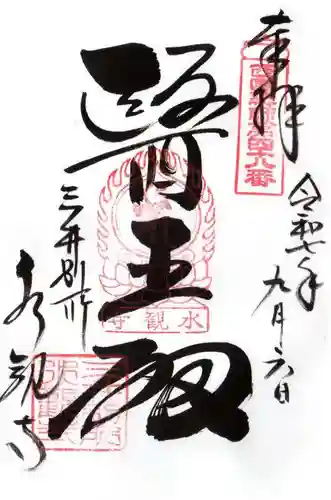 奉拝
西国薬師第四十八番
令和七年
九月六日
醫王殿
水観寺
三井別所
水観寺